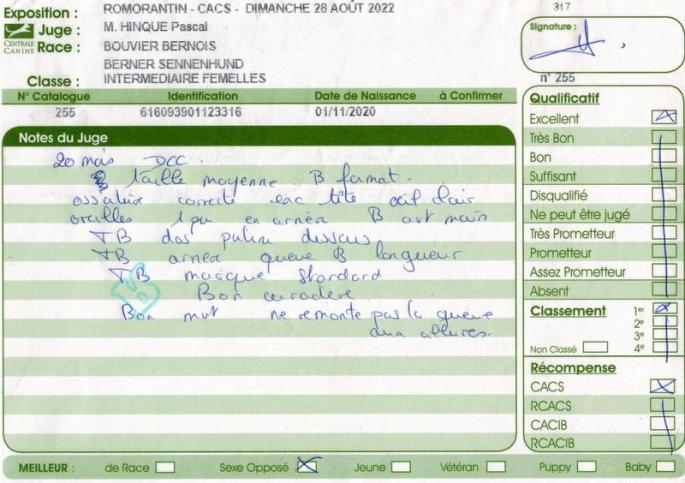 Exposition : ROMORANTIN - CACS - DIMANCHE 28 AOÛT 2022
317
Juge : M. HINQUE Pascal
Signature :
CENTRALE CANINE
Race : BOUVIER BERNOIS
BERNER SENNENHUND
Classe : INTERMEDIAIRE FEMELLES
n° 255
N° Catalogue Identification Date de Naissance à Confirmer
255 616093901123316 01/11/2020
Notes du Juge
20 mois DCC.
taille moyenne B format.
ossature correcte tête œil clair
oreilles 1 peu en arrière B avt main
TB dos dessus
TB arrière queue B longueur
TB masque standard
Bon caractère
Bon mvt ne remonte pas la queue
aux allures
Qualificatif
Excellent
Très Bon
Bon
Suffisant
Disqualifié
Ne peut être jugé
Très Prometteur
Prometteur
Assez Prometteur
Absent
Classement 1er
2e
3e
Non Classé 4e
Récompense
CACS
RCACS
CACIB
RCACIB
MEILLEUR : de Race Sexe Opposé Jeune Vétéran Puppy Baby